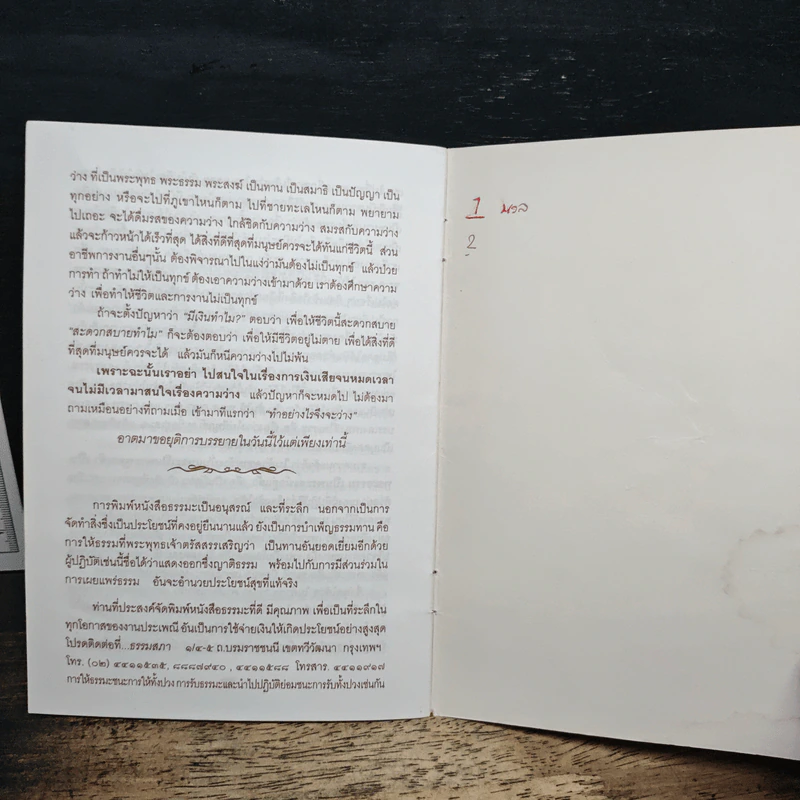 ว่าง ที่เป็นพระพุทธ พระธรรม พระสงฆ์ เป็นทาน เป็นสมาธิ เป็นปัญญา เป็น
ทุกอย่าง หรือจะไปที่ภูเขาไหนก็ตาม ไปที่ชายทะเลไหนก็ตาม พยายาม
ไปเถอะ จะได้ดื่มรสของความว่าง ใกล้ชิดกับความว่าง สมรสกับความว่าง
แล้วจะก้าวหน้าได้เร็วที่สุด ได้สิ่งที่ดีที่สุดที่มนุษย์ควรจะได้ทันแก่ชีวิตนี้ ส่วน
อาชีพการงานอื่นๆนั้น ต้องพิจารณาไปในแง่ว่ามันต้องไม่เป็นทุกข์ แล้วป่วย
การทำ ถ้าทำไม่ให้เป็นทุกข์ ต้องเอาความว่างเข้ามาด้วย เราต้องศึกษาความ
ว่าง เพื่อทำให้ชีวิตและการงานไม่เป็นทุกข์
ถ้าจะตั้งปัญหาว่า "มีเงินทำไม?" ตอบว่า เพื่อให้ชีวิตนี้สะดวกสบาย
"สะดวกสบายทำไม" ก็จะต้องตอบว่า เพื่อให้มีชีวิตอยู่ไม่ตาย เพื่อได้สิ่งที่ดี
ที่สุดที่มนุษย์ควรจะได้ แล้วมันก็หนีความว่างไปไม่พ้น
เพราะฉะนั้นเราอย่า ไปสนใจในเรื่องการเงินเสียจนหมดเวลา
จนไม่มีเวลามาสนใจเรื่องความว่าง แล้วปัญหาก็จะหมดไป ไม่ต้องมา
ถามเหมือนอย่างที่ถามเมื่อ เข้ามาทีแรกว่า "ทำอย่างไรจึงจะว่าง"
อาตมาขอยุติการบรรยายในวันนี้ไว้แต่เพียงเท่านี้
การพิมพ์หนังสือธรรมะเป็นอนุสรณ์ และที่ระลึก นอกจากเป็นการ
จัดทำสิ่งซึ่งเป็นประโยชน์ที่คงอยู่ยืนนานแล้ว ยังเป็นการบำเพ็ญธรรมทาน คือ
การให้ธรรมที่พระพุทธเจ้าตรัสสรรเสริญว่า เป็นทานอันยอดเยี่ยมอีกด้วย
ผู้ปฏิบัติเช่นนี้ชื่อได้ว่าแสดงออกซึ่งญาติธรรม พร้อมไปกับการมีส่วนร่วมใน
การเผยแพร่ธรรม อันจะอำนวยประโยชน์สุขที่แท้จริง
ท่านที่ประสงค์จัดพิมพ์หนังสือธรรมะที่ดี มีคุณภาพ เพื่อเป็นที่ระลึกใน
ทุกโอกาสของงานประเพณี อันเป็นการใช้จ่ายเงินให้เกิดประโยชน์อย่างสูงสุด
โปรดติดต่อที่...ธรรมสภา ๑/๔-๕ ถ.บรมราชชนนี เขตทวีวัฒนา กรุงเทพฯ
โทร. (๐๒) ๔๔๑๑๕๓๕, ๘๘๘๗๙๔๐ , ๔๔๑๑๕๘๘ โทรสาร. ๔๔๑๑๙๑๗
การให้ธรรมะชนะการให้ทั้งปวง การรับธรรมะและนำไปปฏิบัติย่อมชนะการรับทั้งปวงเช่นกัน
1
2